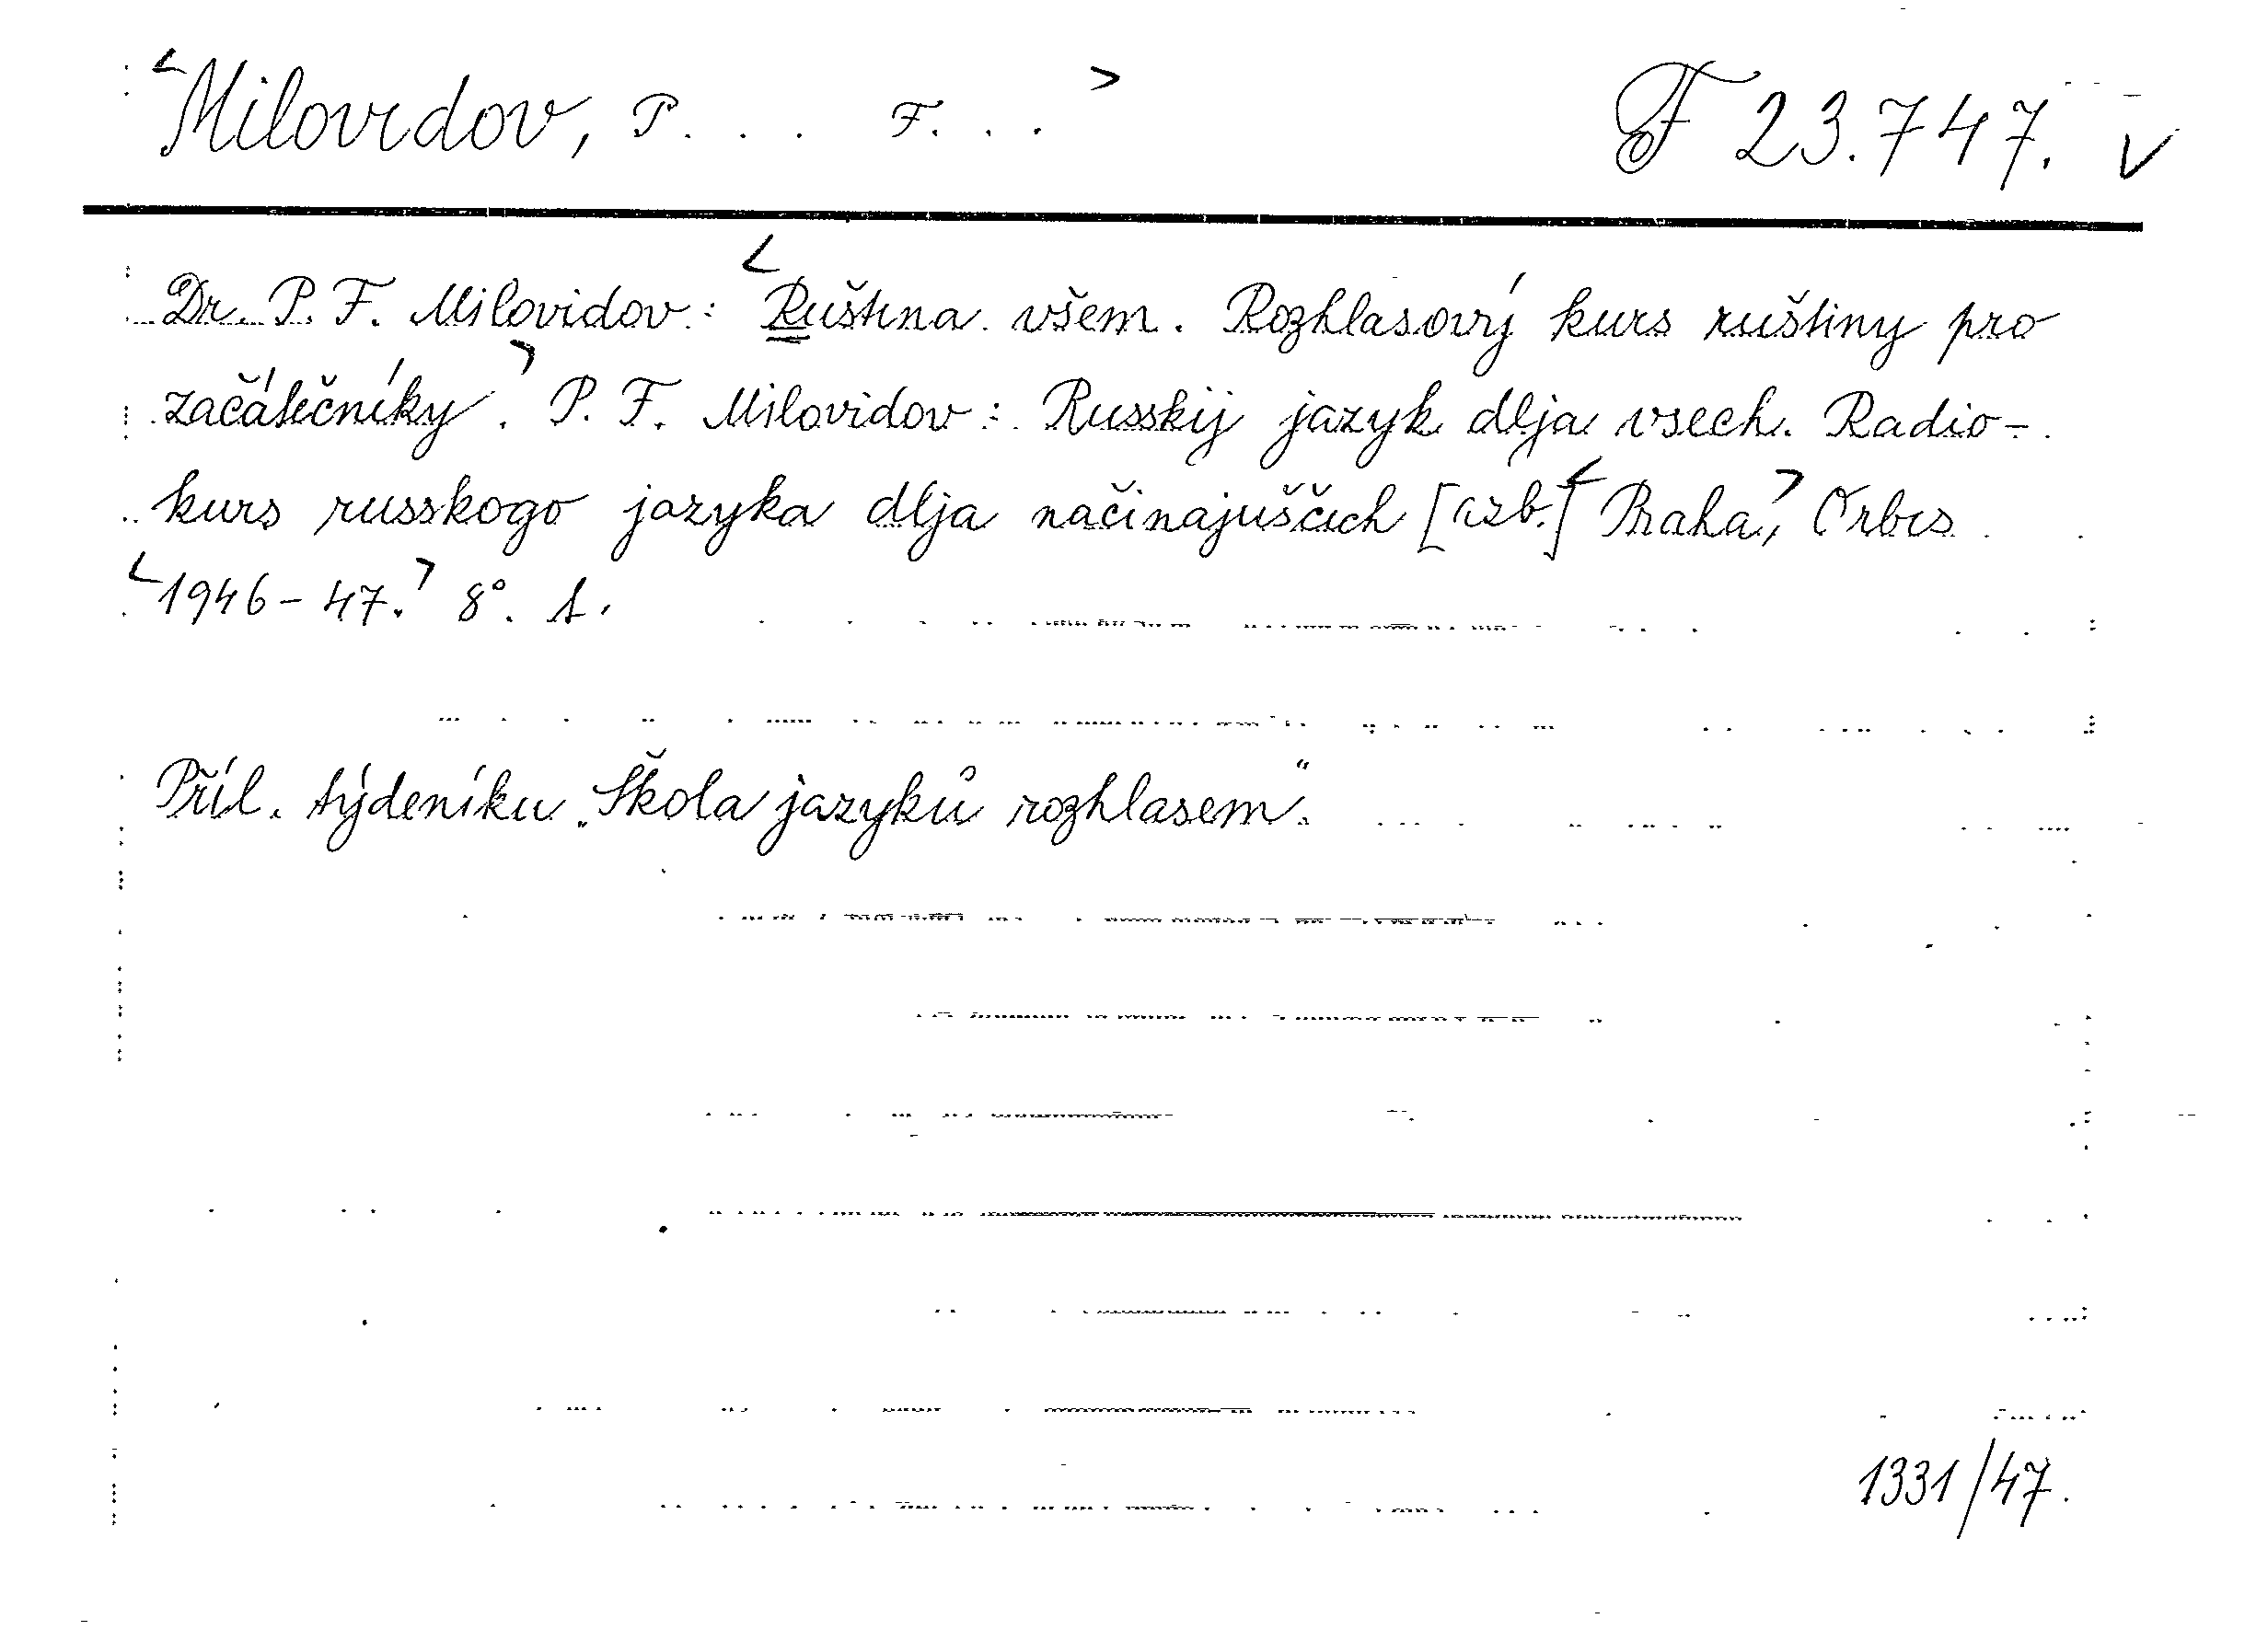 <Milovidov, P... F...> F 23.747. v
Dr. P. F. Milovidov: <Ruština všem. Rozhlasový kurs ruštiny pro
začátečníky.> P. F. Milovidov: Russkij jazyk dlja vsech. Radio-
kurs russkogo jazyka dlja načinajuščich [azb.] <Praha,> Orbis
<1946-47.> 8°. 1.
Příl. týdeníku „Škola jazyků rozhlasem“.
1331/47.